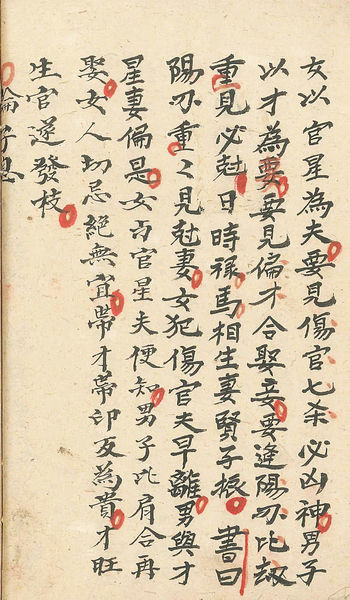 女以官星為夫要見傷官七杀必凶神男子
以才為妻要見偏才合娶妾要逢陽刃比劫
重見必尅日時祿馬相生妻賢子振 書曰
陽刃重〻見尅妻女犯傷官夫早離男與才
星妻偏是女官星夫便知男子比肩合再
娶女人切忌絕無宜帶才帶印反為貴才旺
生官逆發枝
論子息